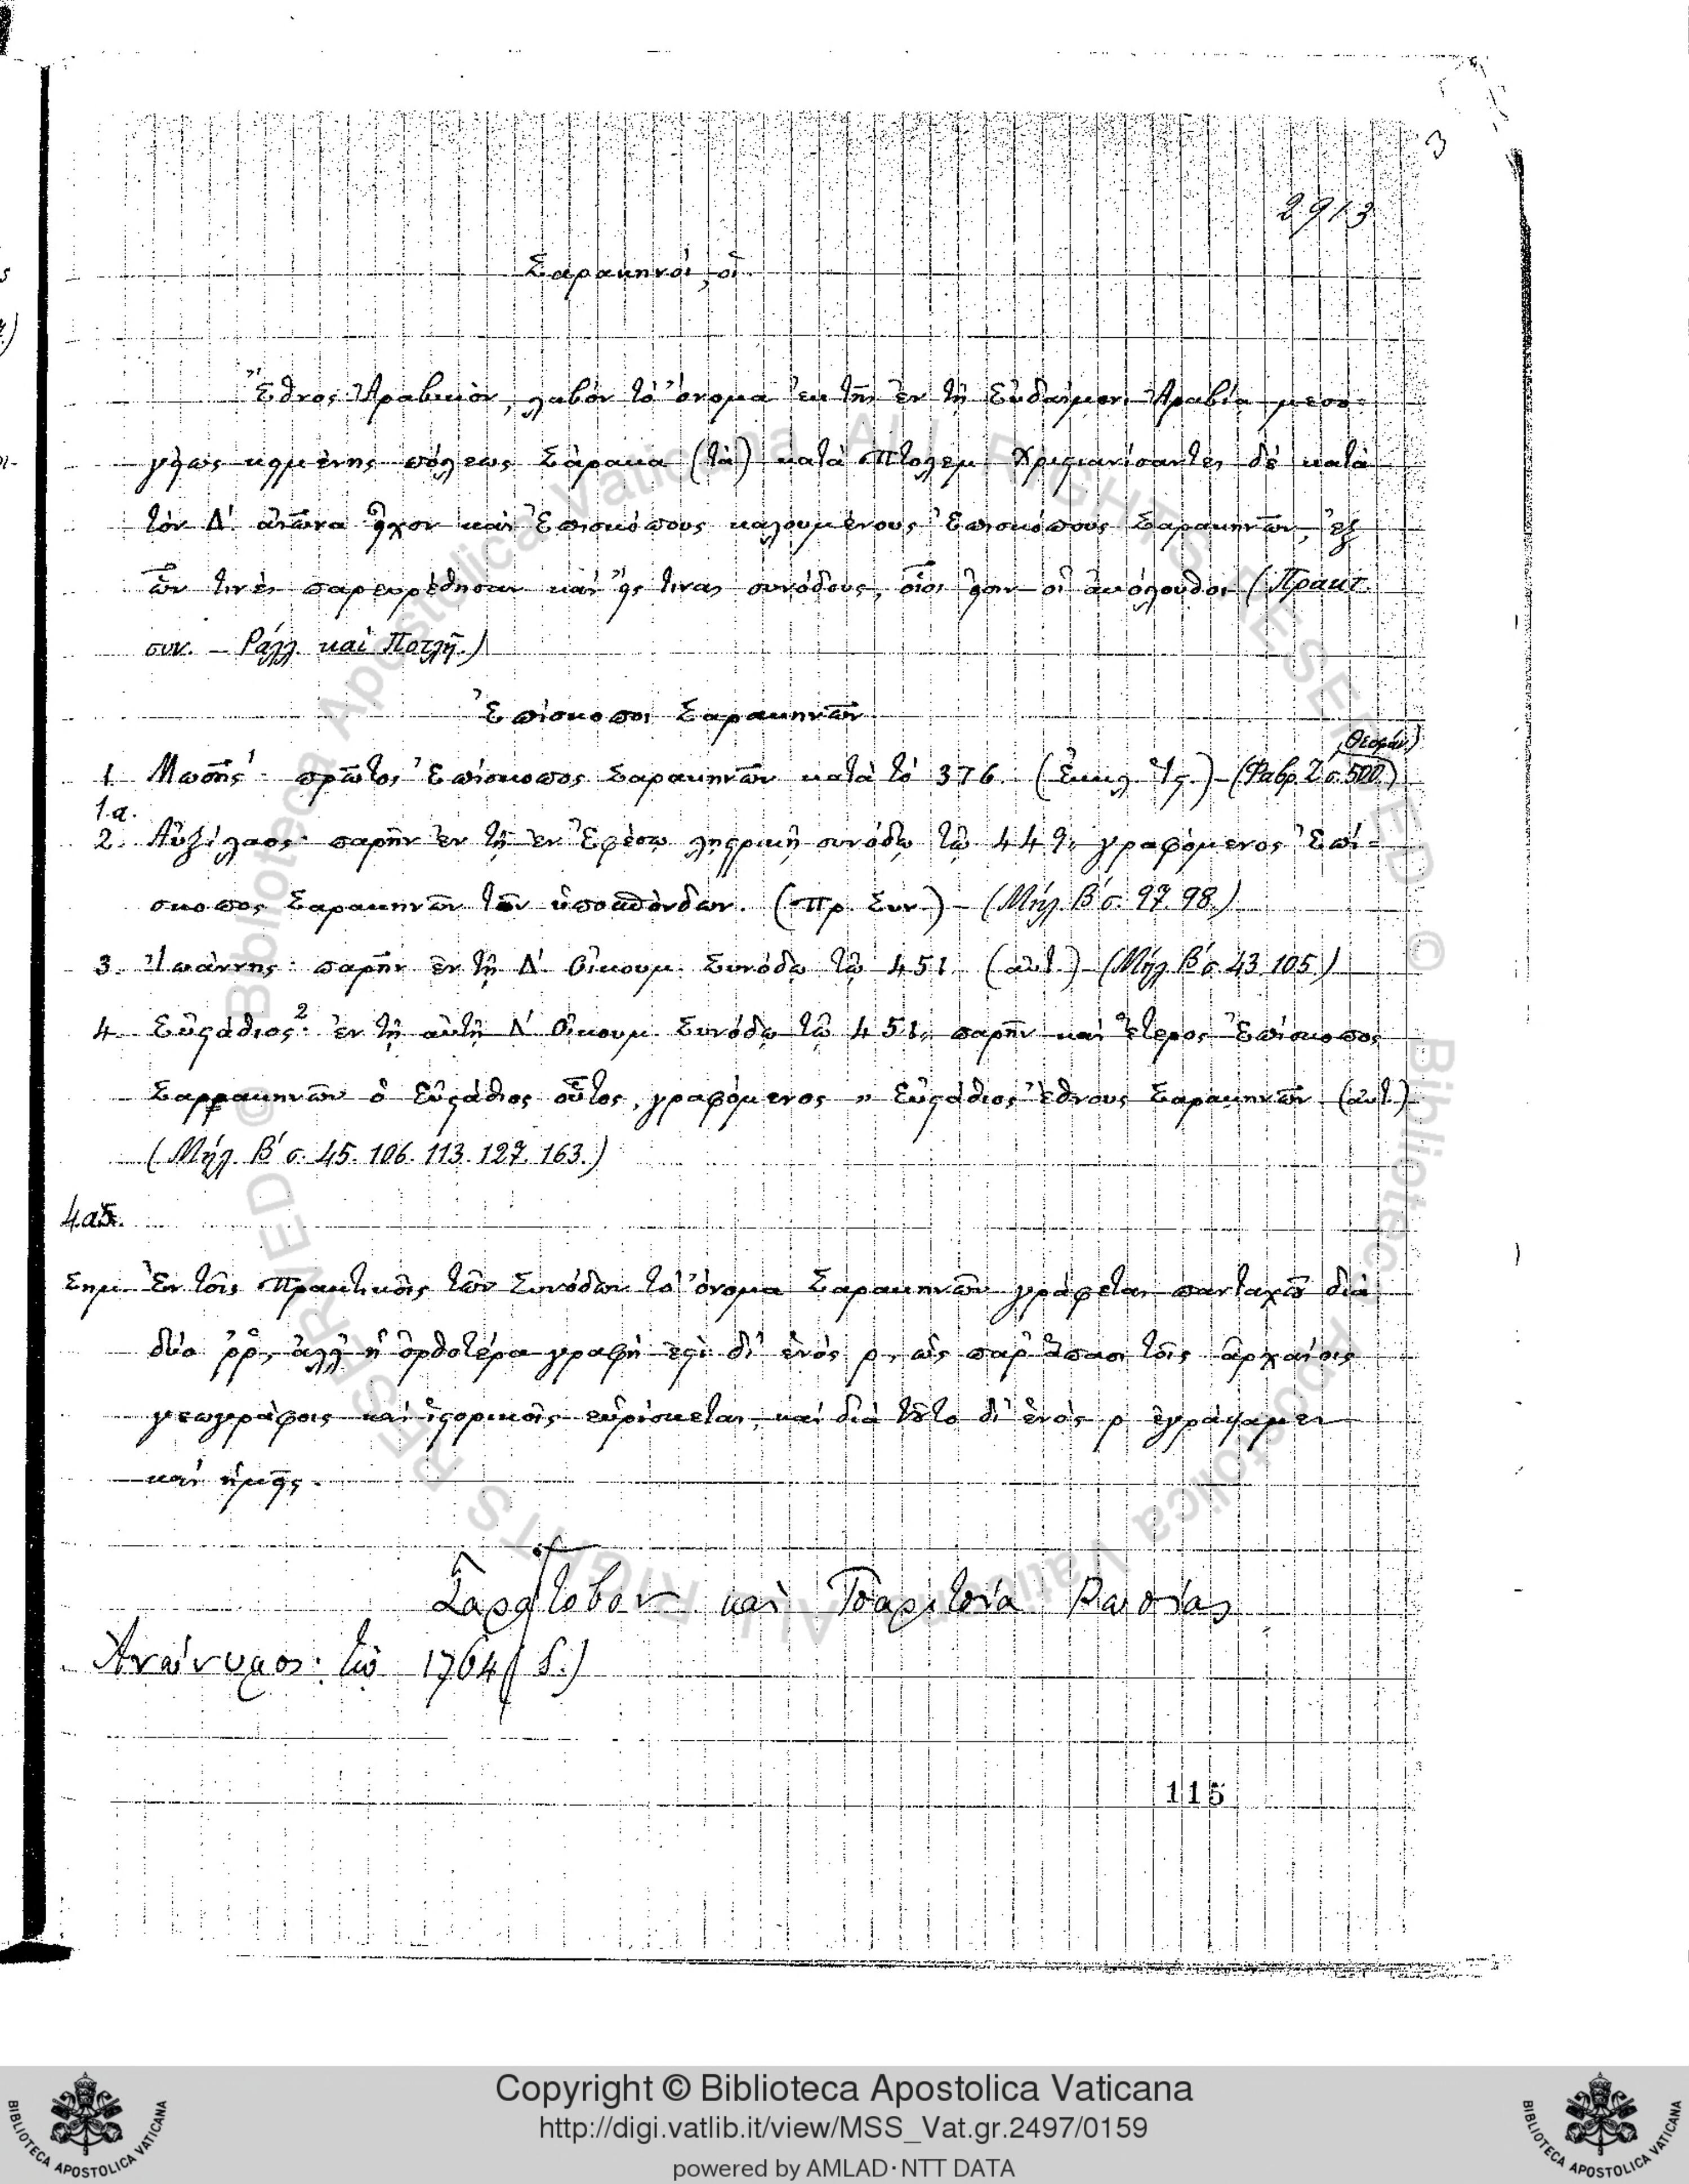 3
2913
Σαρακηνοί, οἱ
Ἔθνος Ἀραβικὸν, λαβὸν τὸ ὄνομα ἐκ τῆς ἐν τῇ Εὐδαίμονι Ἀραβίᾳ μεσο=
γείως κειμένης πόλεως Σάρακα (τὰ) κατὰ Πτολεμ. Χριστιανίσαντες δὲ κατὰ
τὸν Δ΄. αἰῶνα εἶχον καὶ Ἐπισκόπους καλουμένους Ἐπισκόπους Σαρακηνῶν, ἐξ
ὧν τινὲς παρευρέθησαν καὶ εἴς τινας συνόδους, οἷοι εἰσιν οἱ ἀκόλουθοι (Πρακτ.
συν. – Ράλλ. καὶ Ποτλῆ.)
Ἐπίσκοποι Σαρακηνῶν
(Θεοφάν)
1. Μωσῆς· πρῶτος Ἐπίσκοπος Σαρακηνῶν κατὰ τὸ 376. (Ἐκκλ. Ἱς.) – (Φαβρ. Ζ σ. 500.)
1.α.
2. Αὐξίλαος· παρῆν ἐν τῇ ἐν Ἐφέσῳ ληστρικῇ συνόδῳ τῷ 449, γραφόμενος Ἐπί=
σκοπος Σαρακηνῶν τῶν ὑποσπόνδων. (Πρ. Συν.) – (Μήλ. Β΄ σ. 97. 98.)
3. Ἰωάννης: παρῆν ἐν τῇ Δ΄. Οἰκουμ. Συνόδῳ τῷ 451. (αὐτ.) – (Μήλ. Β΄ σ. 43. 105.)
4. Εὐστάθιος²: ἐν τῇ αὐτῇ Δ΄ Οἰκουμ. Συνόδῳ τῷ 451, παρῆν καὶ ἕτερος Ἐπίσκοπος
Σαρρακηνῶν ὁ Εὐστάθιος οὗτος, γραφόμενος „ Εὐστάθιος ἔθνους Σαρακηνῶν (αὐτ.)
(Μήλ. Β΄ σ. 45. 106. 113. 127. 163.)
4.α.
Σημ. Ἐν τοῖς Πρακτικοῖς τῶν Συνόδων τὸ ὄνομα Σαρακηνῶν γράφεται πανταχοῦ διὰ
δύο ῤῥ, ἀλλ' ἡ ὀρθοτέρα γραφὴ ἐστὶ δι' ἑνὸς ρ, ὡς παρ' ἅπασι τοῖς ἀρχαίοις
γεωγράφοις καὶ ἱστορικοῖς εὑρίσκεται, καὶ διὰ τοῦτο δι' ἑνὸς ρ ἐγράψαμεν
καὶ ἡμεῖς.
Σαράτοβον καὶ Τσαριτσία Ρωσίας
Ἀνώνυμος: τῷ 1764 (S.)
115
BIBLIOTECA APOSTOLICA VATICANA
Copyright © Biblioteca Apostolica Vaticana
http://digi.vatlib.it/view/MSS_Vat.gr.2497/0159
powered by AMLAD·NTT DATA
BIBLIOTECA APOSTOLICA VATICANA